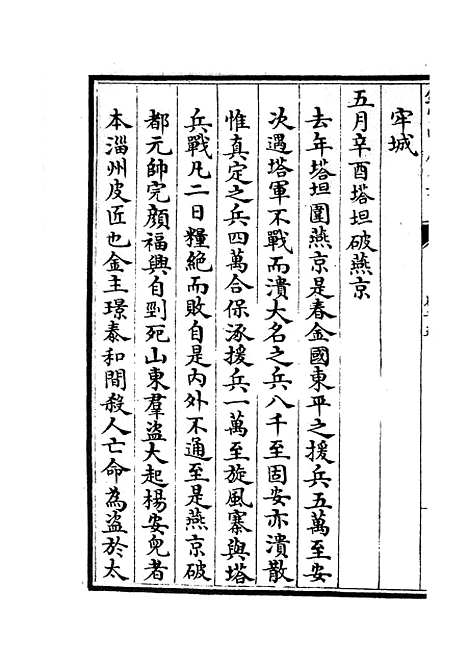 牢城
五月辛酉塔坦破燕京
去年塔坦圍燕京是春金國東平之援兵五萬至安
次遇塔軍不戰而潰大名之兵八千至固安亦潰散
惟真定之兵四萬合保涿援兵一萬至旋風寨與塔
兵戰凡二日糧絶而敗自是内外不通至是燕京破
都元帥完顔福興自剄死山東羣盜大起楊安兒者
本淄州皮匠也金主璟泰和間殺人亡命為盜於太